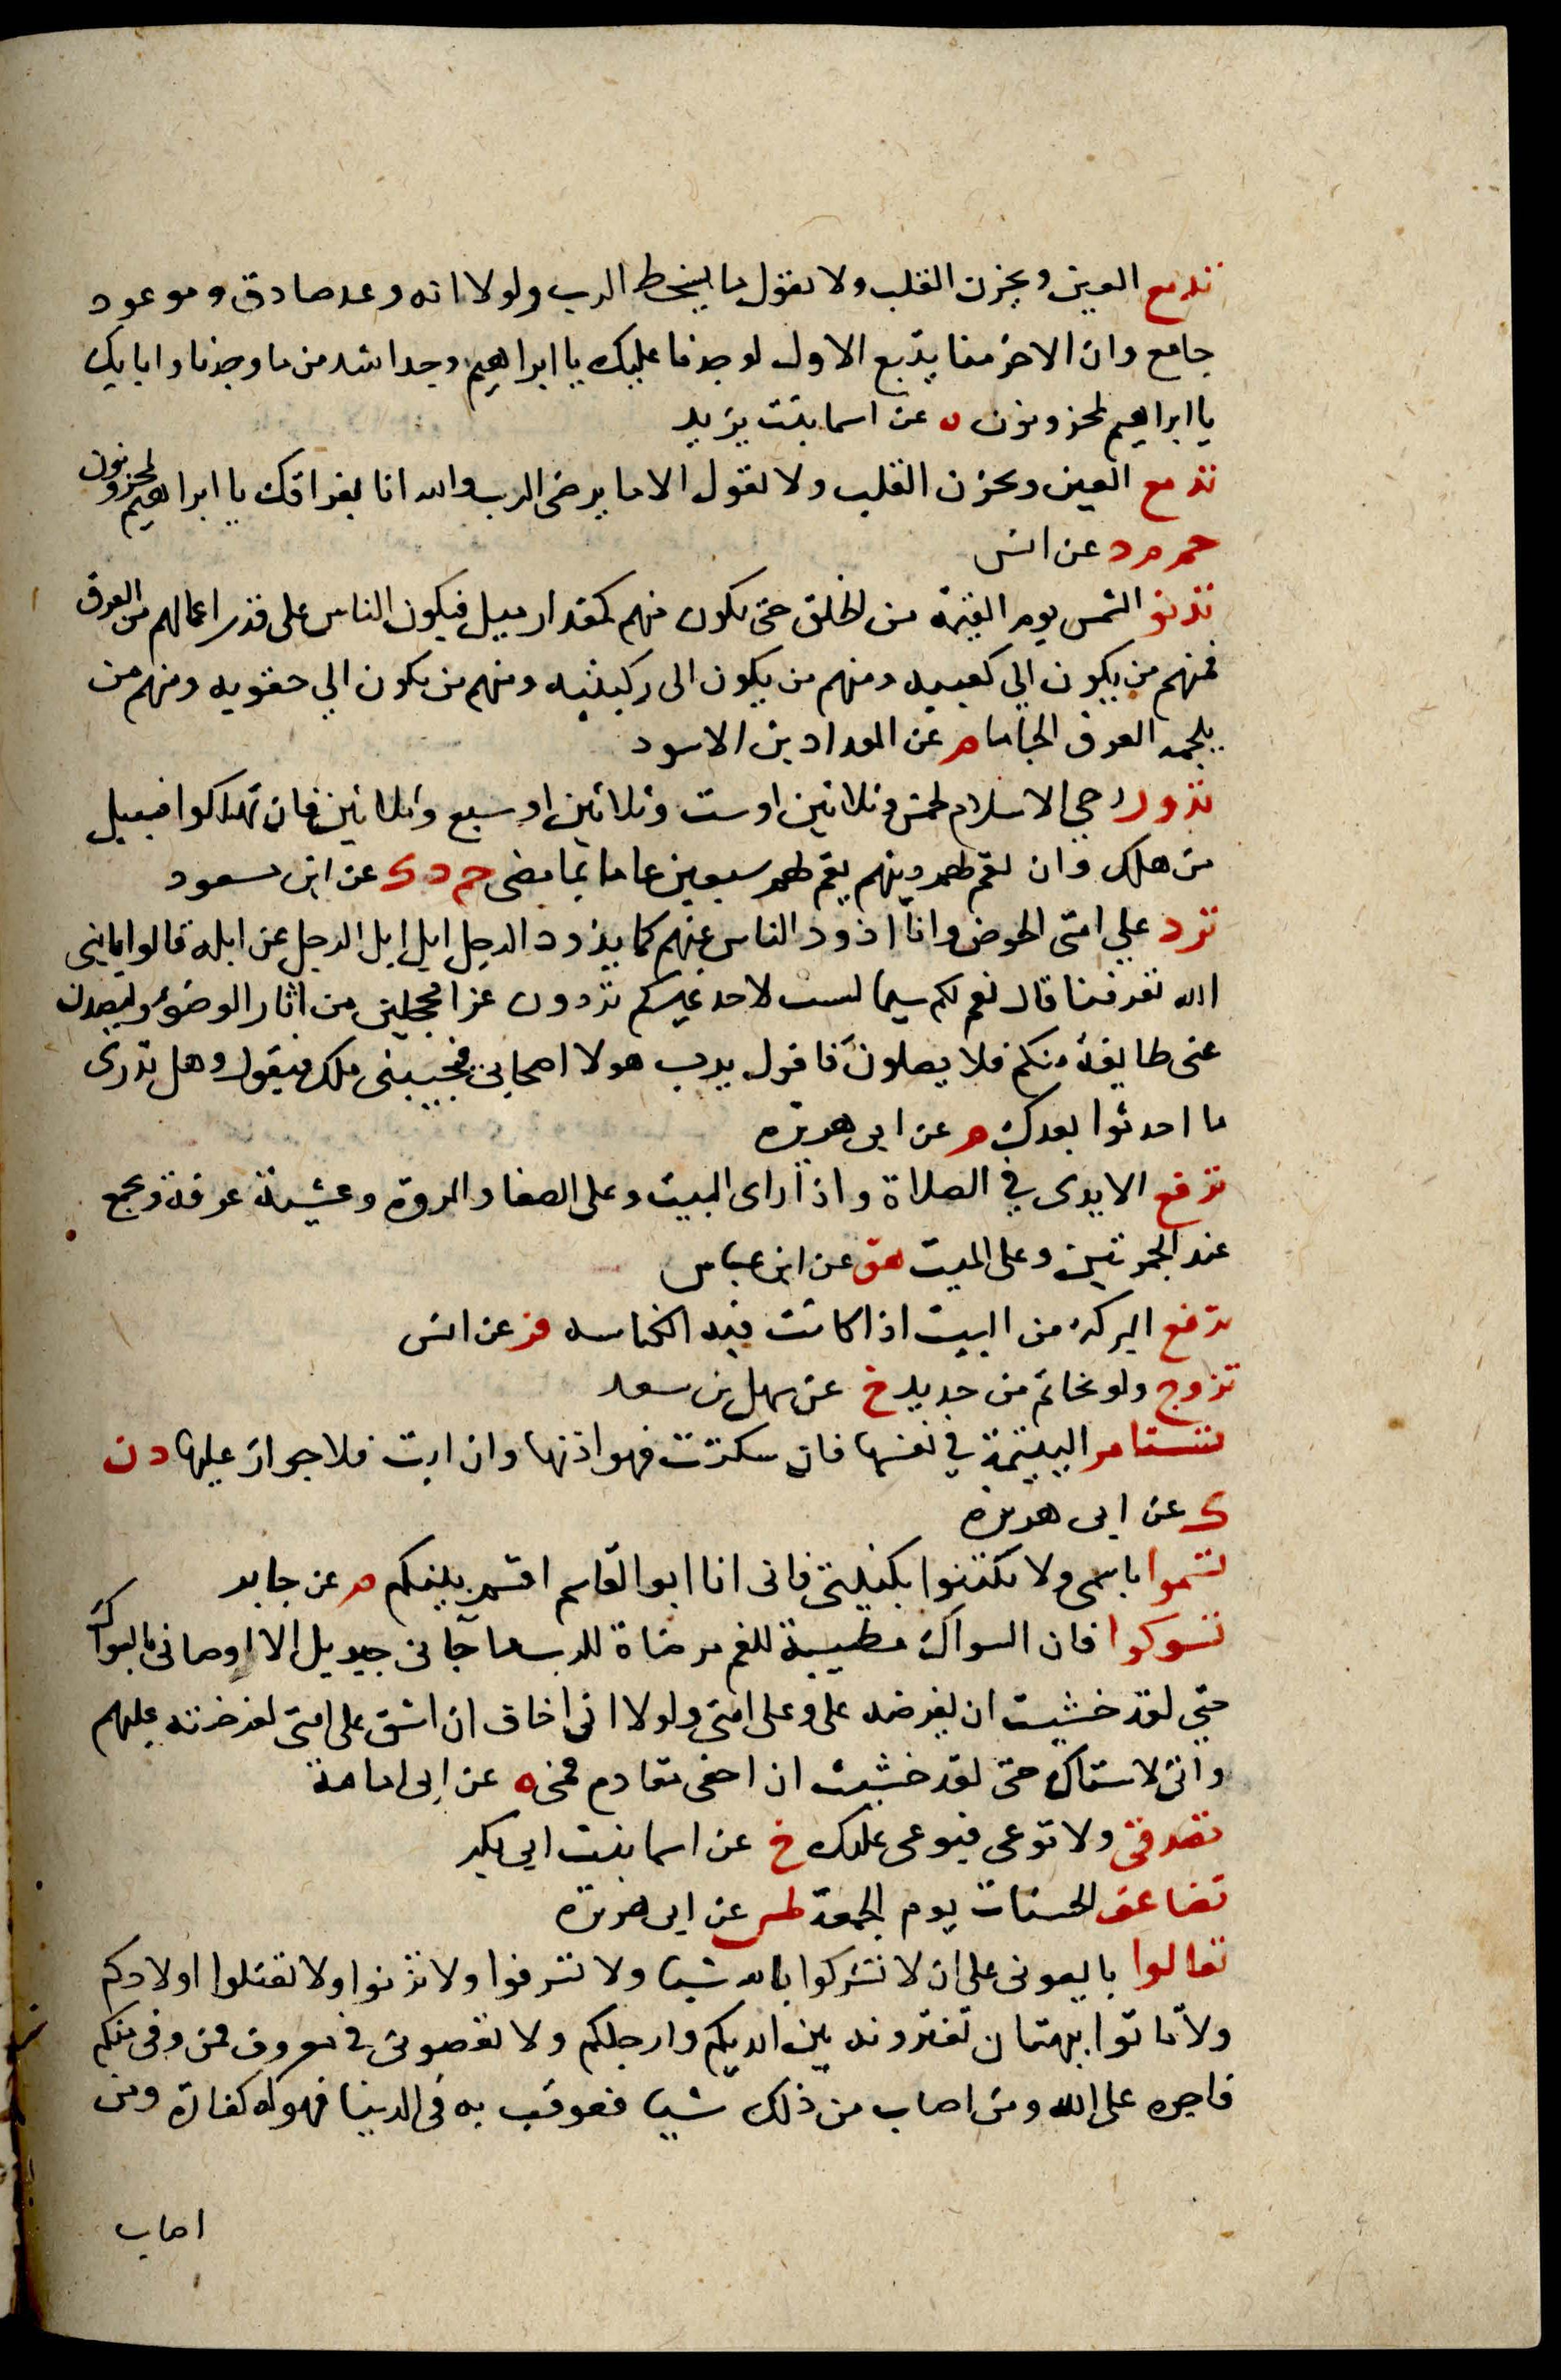 تدمع العين ويحزن القلب ولا نقول ما يسخط الرب ولولا انه وعد صادق وموعود
جامع وان الاخر منا يتبع الاول لوجدنا عليك يا ابراهيم وجدا اشد من ما وجدنا وانا بك
يا ابراهيم لمحزونون ه عن اسما بنت يزيد
تدمع العين ويحزن القلب ولا نقول الا ما يرضى الرب والله انا بفراقك يا ابراهيم لمحزونون
حم م د عن انس
تدنو الشمس يوم القيمة من الخلق حتى تكون منهم كمقدار ميل فيكون الناس على قدر اعمالهم من العرق
فمنهم من يكون الي كعبيه ومنهم من يكون الى ركبتيه ومنهم من يكون الي حقويه ومنهم من
يلجمه العرق الجاما م عن المقداد بن الاسود
تدور رحي الاسلام لخمس وثلاثين او ست وثلاثين او سبع وثلاثين فان تهلكوا فسبيل
من هلك وان يقم لهم دينهم يقم لهم سبعين عاما بما مضى حم د ك عن ابن مسعود
ترد علي امتى الحوض وانا اذود الناس عنهم كما يذود الرجل ابل ابل الرجل عن ابله قالوا يا نبي
الله تعرفنا قال نعم لكم سيما ليست لاحد غيركم تردون غرا محجلين من اثار الوضوء وليصدن
عنى طايفة منكم فلا يصلون فاقول يرب هولا اصحابى فيجيبنى ملك فيقول وهل تدرى
ما احدثوا بعدك م عن ابى هريرة
ترفع الايدى في الصلاة واذا راى البيت وعلى الصفا والمروة وعشية عرفة وبجمع
عند الجمرتين وعلى الميت هق عن ابن عباس
ترفع البركة من البيت اذا كانت فيه الكناسه فر عن انس
تزوج ولو بخاتم من حديد خ عن سهل بن سعد
تستامر اليتيمة في نفسها فان سكتت فهو اذنها وان ابت فلا جواز عليها د ن
ك عن ابى هريرة
تسموا باسمى ولا تكتنوا بكنيتى فانى انا ابو القاسم اقسم بينكم م عن جابر
تسوكوا فان السواك مطيبة للفم مرضاة للرب ما جآنى جبريل الا اوصانى بالسواك
حتي لقد خشيت ان يفرضه على وعلى امتى ولولا انى اخاف ان اشق على امتى لفرضته عليهم
وانى لاستاك حتى لقد خشيت ان احفى مقادم فمى ه عن ابى امامة
تصدقى ولا توعى فيوعى عليك خ عن اسما بنت ابى بكر
تضاعف الحسنات يوم الجمعة طس عن ابى هريرة
تعالوا بايعونى على ان لا تشركوا بالله شيا ولا تسرقوا ولا تزنوا ولا تقتلوا اولادكم
ولا تاتوا ببهتان تفترونه بين ايديكم وارجلكم ولا تعصونى فى معروف فمن وفى منكم
فاجره على الله ومن اصاب من ذلك شيا فعوقب به فى الدنيا فهو له كفارة ومن
اصاب